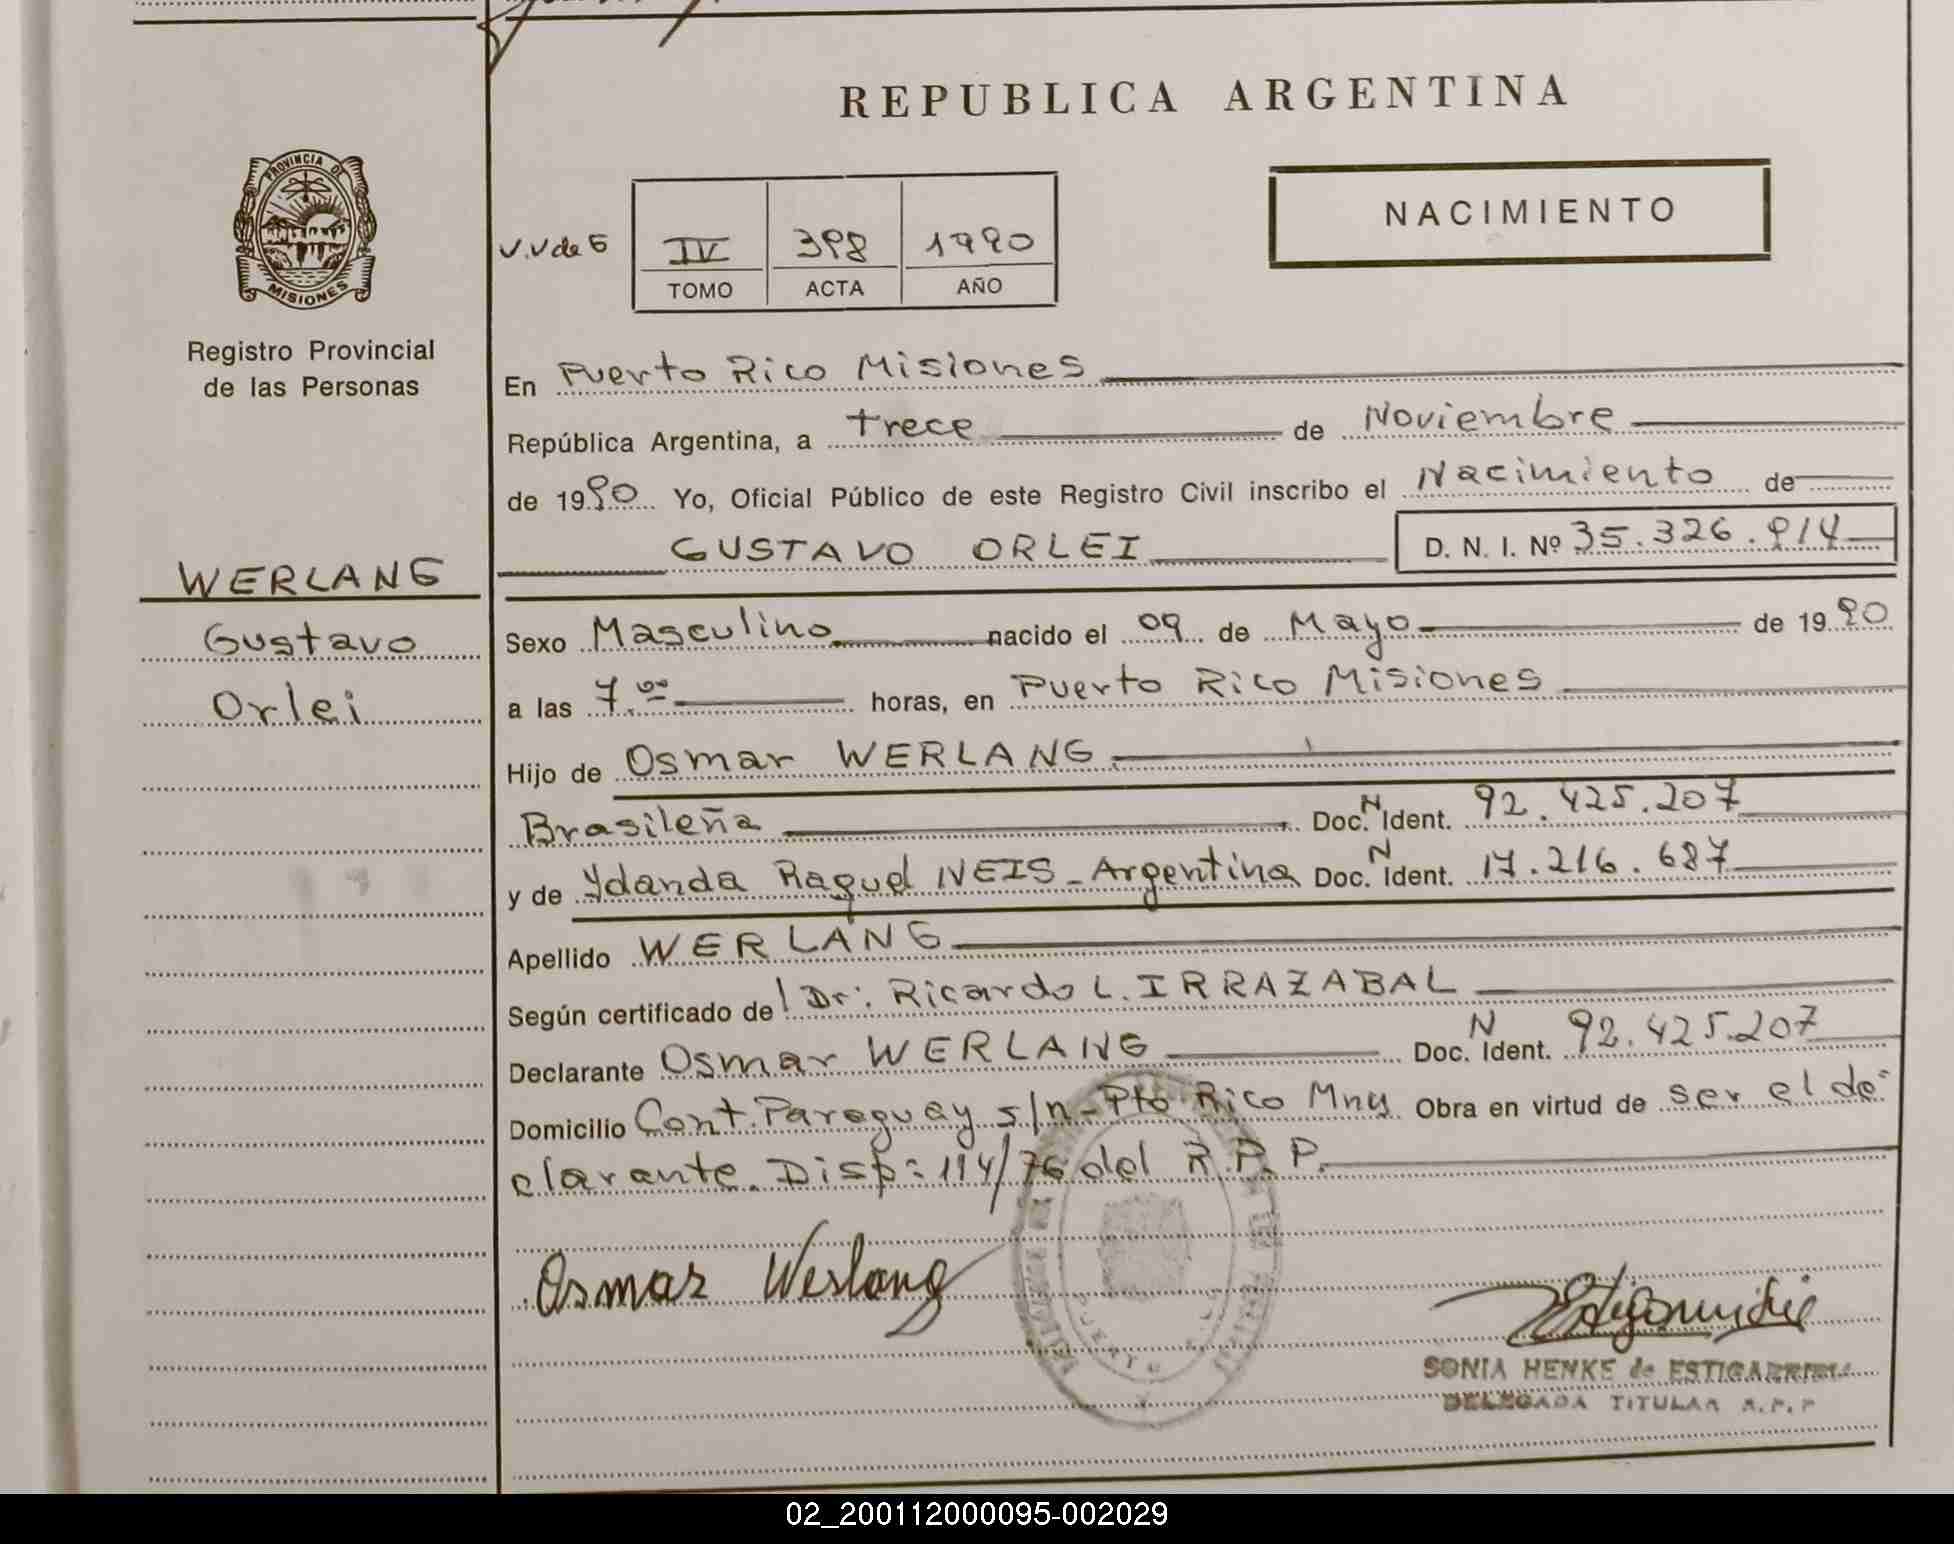 REPUBLICA ARGENTINA
PROVINCIA DE
MISIONES
Registro Provincial
de las Personas
NACIMIENTO
V.V de 5
IV 398 1990
TOMO ACTA AÑO
En Puerto Rico Misiones
República Argentina, a trece de Noviembre
de 1990 Yo, Oficial Público de este Registro Civil inscribo el Nacimiento de
GUSTAVO ORLEI D. N. I. Nº 35.326.914
WERLANG
Gustavo
Orlei
Sexo Masculino nacido el 09 de Mayo de 1990
a las 7.00 horas, en Puerto Rico Misiones
Hijo de Osmar WERLANG
Brasileña Doc. N Ident. 92.425.207
y de Ydanda Raquel NEIS - Argentina Doc. N Ident. 17.216.687
Apellido WERLANG
Según certificado del Dr: Ricardo L. IRRAZABAL
Declarante Osmar WERLANG Doc. N Ident. 92.425.207
Domicilio Cont. Paraguay s/n - Pto Rico Mnes Obra en virtud de ser el de-
clarante. Disp: 114/76 del R.P.P.
Osmar Werlang
SONIA HENKE de ESTIGARRIBIA
DELEGADA TITULAR R.P.P
02_200112000095-002029